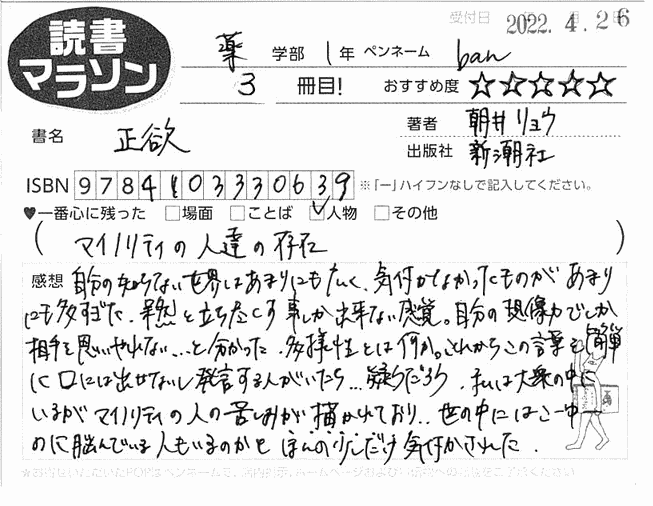 受付日 年 月 日 2022.4.26
読書
マラソン
薬 学部 1 年 ペンネーム ban
3 冊目! おすすめ度 ☆☆☆☆☆
書名 正欲
著者 朝井リョウ
出版社 新潮社
ISBN 9784103330639 ※「-」ハイフンなしで記入してください。
♥一番心に残った □場面 □ことば ☑人物 □その他
(マイノリティの人達の存在)
感想 自分の知らない世界はあまりにも広く、気付かなかったものがあまり
にも多すぎた。呆然と立ち尽くす事しか出来ない感覚。自分の想像力でしか
相手を思いやれない...と分かった。多様性とは何か。これからこの言葉を簡単
に口には出せないし発言する人がいたら...疑うだろう。私は大衆の中に
いるがマイノリティの人の苦しみが描かれており..世の中にはこーゆー
のに悩んでいる人もいるのかとほんの少しだけ気付かされた。
☆お寄せいただいたPOPはペンネームで、